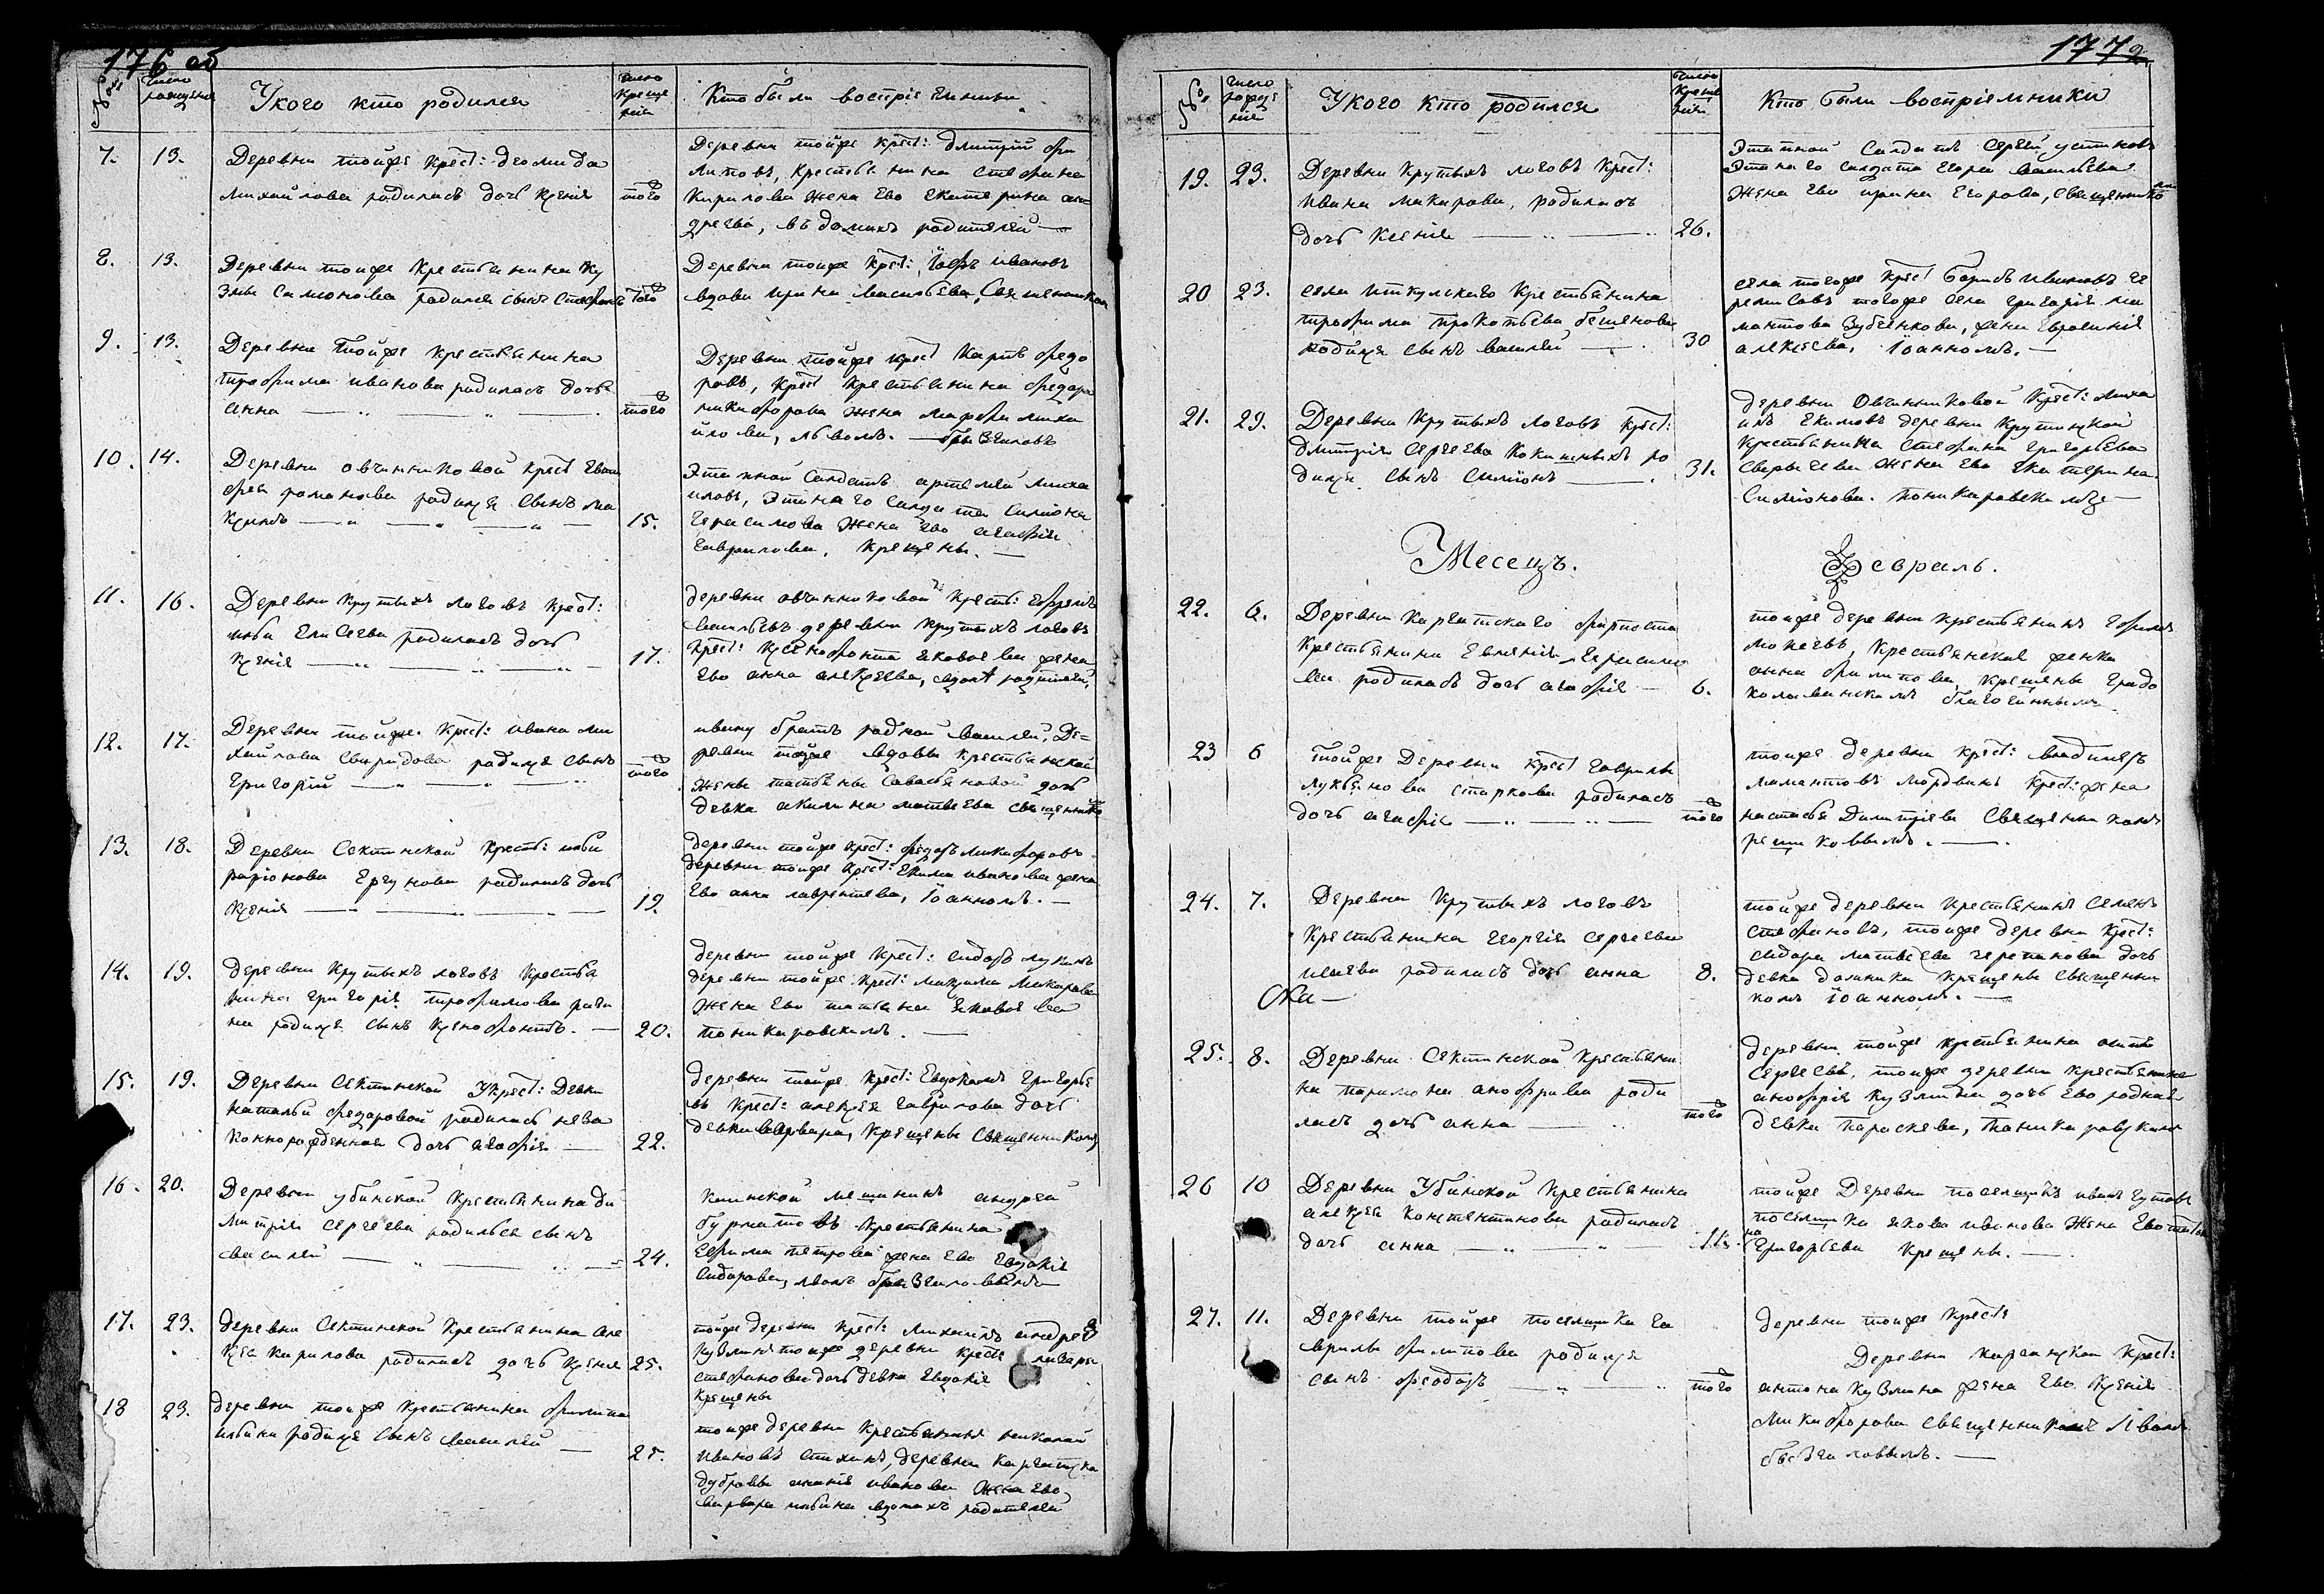 176 об
№
Число рождения
У кого кто родился
Число крещения
Кто были восприемники
7. 13.
Деревни тойже крест: Деомида
Михайлова родилась дочь Ксенія
того
Деревни тойже крест: Дмитрій Фи
липовъ, крестьянина Стефана
Кирилова жена Ево Екатерина ан=
дреева, въ домахъ родителей —
8. 13.
Деревни тойже крестьянина Ку
змы Симонова родился сынъ Стефанъ
того
Деревни тойже крест: Ивановъ
вдова Ирина Васильева, Священником
9. 13.
Деревни тойже крестьянина
Трофима иванова родилась дочь
анна
того
Деревни тойже крест Карпъ Федо
ровъ, крест крестьянина Федора
никифорова жена Марфа миха
йлова, львомъ.
10. 14.
Деревни овчинниковой крест
романова родился сынъ Ма
ксимъ
15.
Этапной Салдатъ артемей Миха
йловъ, Этапнаго Салдата Симіона
Герасимова Жена Ево агафія
Гаврилова, крещены. —
11. 16.
Деревни крутыхъ логовъ крест:
ильи Елисеева родилась дочь
Ксенія
17.
деревни овчинниковой крест: Ефремъ
Васильевъ деревни крутыхъ логовъ
крест: Ксенофонта яковлева жена
Ево анна алексеева,
12. 17.
Деревни тойже крест: ивана ми
хайлова Свиридова родился сынъ
Григорій
того
ивану братъ родной василей, Де=
ревни тойже вдовы крестьянской
жены татьяны Савастьяновой дочь
девка акилина матвеева священнико
13. 18.
Деревни Сектинской крест: ильи
раріонова Ергунова родилась дочь
Ксенія
19.
деревни тойже крест: Федоръ Никифоровъ
деревни тойже крест: Екима иванова жена
Ево анна лаврентева, Іоанномъ. —
14. 19.
деревни Крутыхъ логовъ крестья
нина григорія трофимова
на родился сынъ Ксенофонтъ. —
20.
деревни тойже крест: сидоръ лукинъ
деревни тойже крест: максима Макарова
жена Ево татьяна яковлева
поникаровскимъ. —
15. 19.
Деревни Сектинской У крест: Девки
натальи Федоровой родилась неза
коннорожденная дочь агафія —
22.
деревни тойже крест: Евдокимъ Григорье
въ крест: алексея гаврилова дочь
девка варвара, крещены Священникомъ
16. 20.
Деревни убинской крестьянина Ди
митрія сергеева родилься сынъ
василей
24.
Каинской мещанинъ андрей
бурматовъ крестьянина
Ефима петрова жена Ево Евдокія
Сидорова,
17. 23.
деревни Сектинской крестьянина але
ксея кирилова родилась дочь Ксенія
25.
тойже деревни крест: Михаилъ андреев
кузминъ тойже деревни крест: лазаря
стефанова дочь девка Евдокія
крещены
18 23.
деревни тойже крестьянина Филипа
ильина родился сынъ василей —
25.
тойже деревни крестьянинъ николай
ивановъ стихинъ, деревни Каргатска
дубровы ананія иванова жена Ево
варвара ильина вдомахъ родителей
177
№
Число рождения
У кого кто родился
Число крещения
Кто были восприемники
19. 23.
Деревни Крутыхъ логовъ крест:
ивана макарова, родилась
дочь Ксенія
26.
Этапной Салдатъ Сергей устиновъ
Этапнаго салдата Егора васильева
жена Ево ирина Егорова, священником
20 23.
села иткулскаго крестьянина
трофима прокопьева
родился сынъ василей
30
села тогоже крест Борисъ ивановъ че
ремисовъ тогоже села григорія ма
монтова Зубенкова, жена Евросинія
алексеева, Іоанномъ. —
21. 29.
Деревни Крутыхъ логовъ крест:
Дмитрія Сергеева Кокшиныхъ ро
дился сынъ Симіонъ
31.
деревни Овчинниковой крест: Миха
илъ Екимовъ деревни крутинской
крестьянина Стефана григорьева
жена Ево Екатерина
Симіонова. поникаровскимъ —
Месецъ. Февраль.
22. 6.
Деревни Каргатскаго фарпоста
крестьянина Евменія Герасимо
ва родилась дочь агафія —
6.
тойже деревни крестьянинъ Ефимъ
мокеевъ, крестьянская женка
анна филипова крещены градо
колыванскимъ благочинным
23 6
тойже Деревни крест гаврилы
лукьянова старкова родилась
дочь агафія
того
тойже деревни крест: владимеръ
мамонтовъ мордвинъ крест: жена
настасья Димитріева Священникомъ
24. 7.
Деревни Крутыхъ логовъ
крестьянина георгія сергеева
исаева родилась дочь анна
8.
тойже деревни крестьянинъ Семенъ
стефановъ, тойже деревни крест:
сидора матвеева черепанова дочь
девка домника крещены священни
комъ Іоанномъ. —
25. 8.
Деревни Сектинской крестьяни
на парамона анофріева роди
лась дочь анна
того
деревни тойже крестьянина
Сергеевъ, тойже деревни крестьянина
анофрія кузмина дочь Ево родная
девка параскева, поникаровским
26 10
Деревни Убинской крестьянина
алексея константинова родилась
дочь анна
11.
тойже Деревни поселщикъ иванъ гутовъ
поселшика якова иванова жена Ево татья
на григорьева крещены. —
27. 11.
Деревни тойже поселшика га
врилы филипова родился
сынъ Феодоръ
того
деревни тойже крестя
Деревни каргацкой крест:
антона кузмина жена Ево Ксенія
Никифорова священникомъ Львомъ